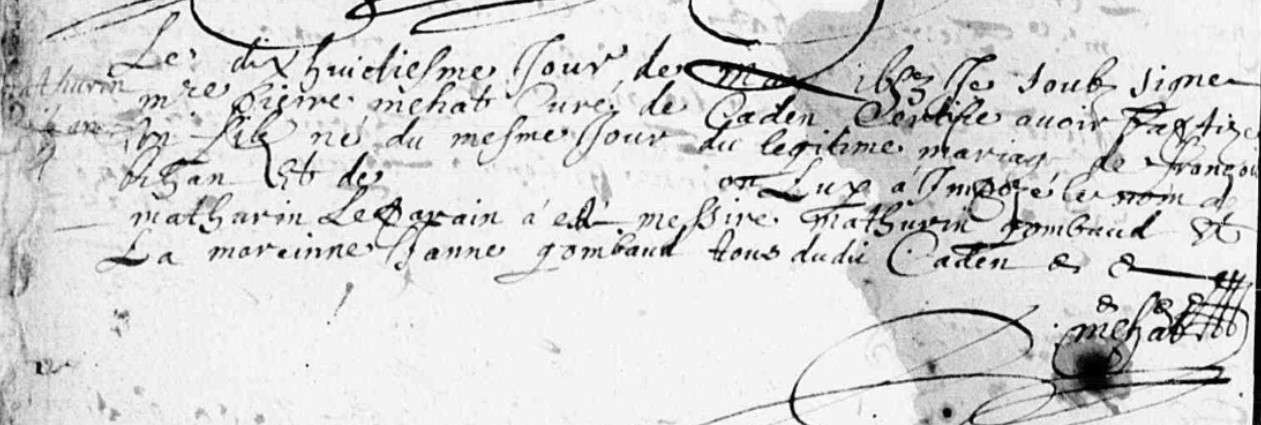 Le dixhuictiesme Jour de may Je soub signe
mre pierre mehat Curé de Caden Certifie avoir Baptize
un filz né du mesme Jour du legitime mariag de françois
bihan Et de on Luy á Imposé le nom de
mathurin Le parain á esté messire mathurin gombaud Et
La mareinne Janne gombaud tous dudit Caden & &
& & &
mehat
mathurin